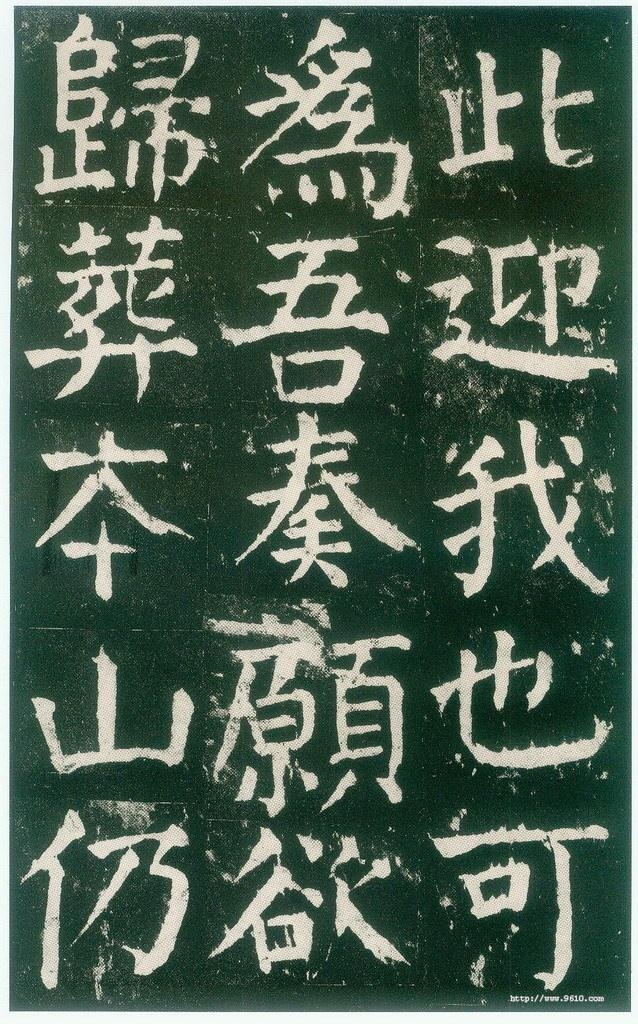 此迎我也可
為吾奏願欲
歸葬本山仍
http://www.9610.com